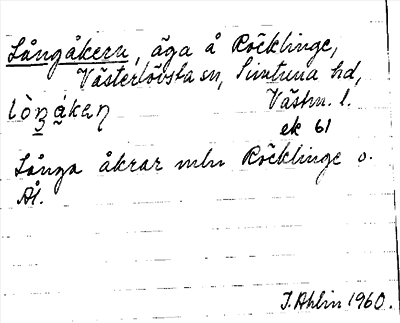 Långåkern, äga å Röcklinge,
Västerlövsta sn, Simtuna hd,
Västm. l.
lòŋákaɳ
ek 61
Långa åkrar mln Röcklinge o.
Ål.
J. Ahlin 1960.